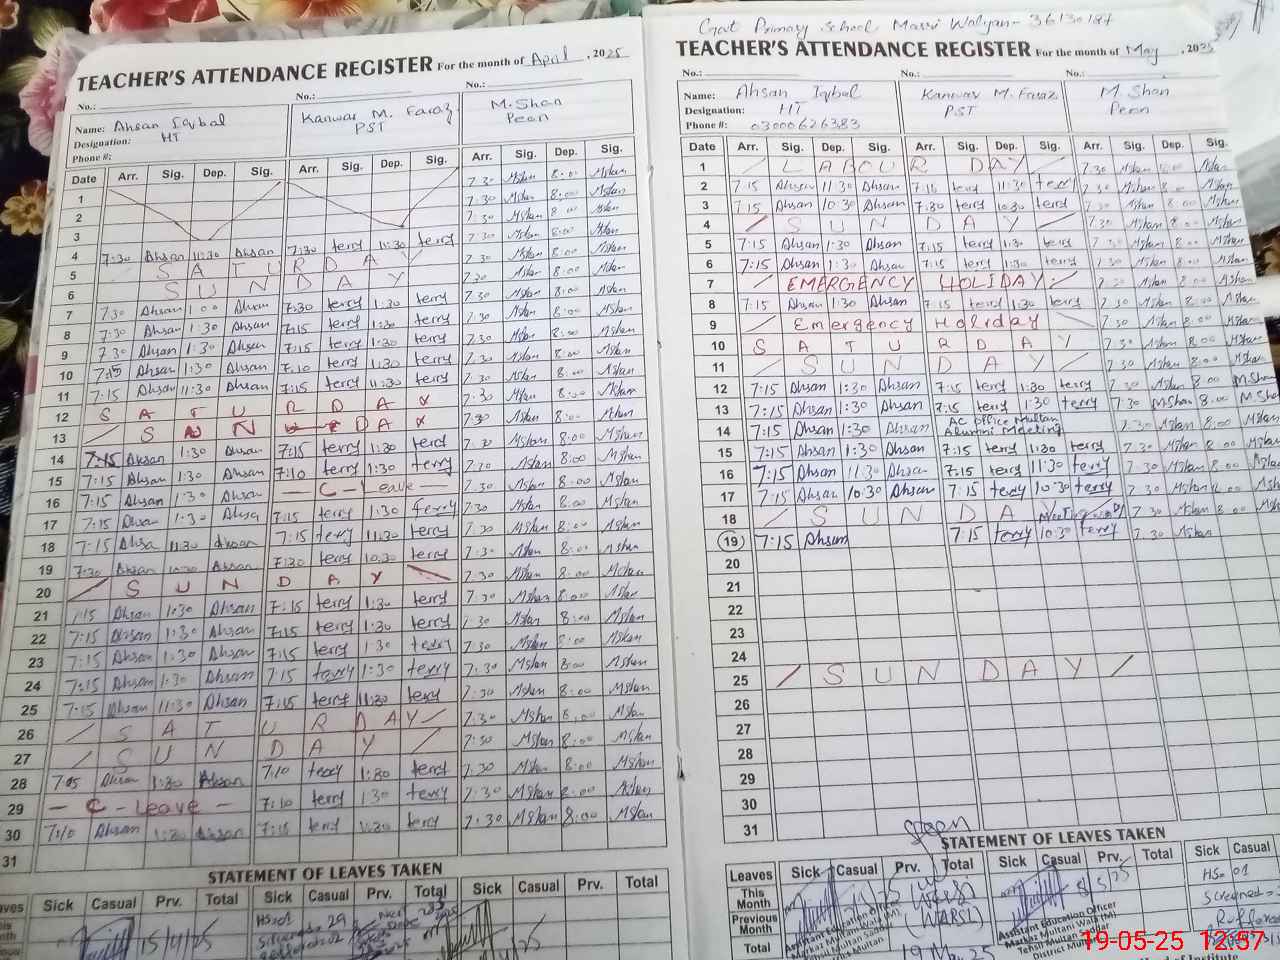 TEACHER'S ATTENDANCE REGISTER For the month of April, 2025
No.: No.: No.:
Name: Ahsan Iqbal Kanwar M. Faraz M. Shan
Designation: HT PST Peon
Phone #:
Date Arr. Sig. Dep. Sig. Arr. Sig. Dep. Sig. Arr. Sig. Dep. Sig.
1 7:30 Mshan 8:00 Mshan
2 7:30 Mshan 8:00 Mshan
3 7:30 Mshan 8:00 Mshan
4 7:30 Ahsan 11:30 Ahsan 7:30 terry 11:30 terry 7:30 Mshan 8:00 Mshan
5 S A T U R D A Y 7:30 Mshan 8:00 Mshan
6 S U N D A Y 7:30 Mshan 8:00 Mshan
7 7:30 Ahsan 1:00 Ahsan 7:30 terry 1:30 terry 7:30 Mshan 8:00 Mshan
8 7:30 Ahsan 1:30 Ahsan 7:15 terry 1:30 terry 7:30 Mshan 8:00 Mshan
9 7:30 Ahsan 1:30 Ahsan 7:15 terry 1:30 terry 7:30 Mshan 8:00 Mshan
10 7:15 Ahsan 1:30 Ahsan 7:10 terry 1:30 terry 7:30 Mshan 8:00 Mshan
11 7:15 Ahsan 11:30 Ahsan 7:15 terry 11:30 terry 7:30 Mshan 8:00 Mshan
12 S A T U R D A Y 7:30 Mshan 8:00 Mshan
13 S U N D A Y 7:30 Mshan 8:00 Mshan
14 7:15 Ahsan 1:30 Ahsan 7:15 terry 1:30 terry 7:30 Mshan 8:00 Mshan
15 7:15 Ahsan 1:30 Ahsan 7:10 terry 1:30 terry 7:30 Mshan 8:00 Mshan
16 7:15 Ahsan 1:30 Ahsan — C - Leave — 7:30 Mshan 8:00 Mshan
17 7:15 Ahsan 1:30 Ahsan 7:15 terry 1:30 terry 7:30 Mshan 8:00 Mshan
18 7:15 Ahsan 11:30 Ahsan 7:15 terry 11:30 terry 7:30 Mshan 8:00 Mshan
19 7:30 Ahsan 10:30 Ahsan 7:30 terry 10:30 terry 7:30 Mshan 8:00 Mshan
20 S U N D A Y 7:30 Mshan 8:00 Mshan
21 7:15 Ahsan 1:30 Ahsan 7:15 terry 1:30 terry 7:30 Mshan 8:00 Mshan
22 7:15 Ahsan 1:30 Ahsan 7:15 terry 1:30 terry 7:30 Mshan 8:00 Mshan
23 7:15 Ahsan 1:30 Ahsan 7:15 terry 1:30 terry 7:30 Mshan 8:00 Mshan
24 7:15 Ahsan 1:30 Ahsan 7:15 terry 1:30 terry 7:30 Mshan 8:00 Mshan
25 7:15 Ahsan 11:30 Ahsan 7:15 terry 11:30 terry 7:30 Mshan 8:00 Mshan
26 S A T U R D A Y 7:30 Mshan 8:00 Mshan
27 S U N D A Y 7:30 Mshan 8:00 Mshan
28 7:05 Ahsan 1:30 Ahsan 7:10 terry 1:30 terry 7:30 Mshan 8:00 Mshan
29 — C - Leave — 7:10 terry 1:30 terry 7:30 Mshan 8:00 Mshan
30 7:10 Ahsan 1:30 Ahsan 7:15 terry 1:30 terry 7:30 Mshan 8:00 Mshan
31
STATEMENT OF LEAVES TAKEN
Sick Casual Prv. Total Sick Casual Prv. Total Sick Casual Prv. Total
15/4/25
Govt Primary School Massri Walyan- 36130187
TEACHER'S ATTENDANCE REGISTER For the month of May, 2025
No.: No.: No.:
Name: Ahsan Iqbal Kanwar M. Faraz M. Shan
Designation: HT PST Peon
Phone #: 03000626383
Date Arr. Sig. Dep. Sig. Arr. Sig. Dep. Sig. Arr. Sig. Dep. Sig.
1 L A B O U R D A Y 7:30 Mshan 8:00 Mshan
2 7:15 Ahsan 11:30 Ahsan 7:15 terry 11:30 terry 7:30 Mshan 8:00 Mshan
3 7:15 Ahsan 10:30 Ahsan 7:30 terry 10:30 terry 7:30 Mshan 8:00 Mshan
4 S U N D A Y 7:30 Mshan 8:00 Mshan
5 7:15 Ahsan 1:30 Ahsan 7:15 terry 1:30 terry 7:30 Mshan 8:00 Mshan
6 7:15 Ahsan 1:30 Ahsan 7:15 terry 1:30 terry 7:30 Mshan 8:00 Mshan
7 EMERGENCY HOLIDAY 7:30 Mshan 8:00 Mshan
8 7:15 Ahsan 1:30 Ahsan 7:15 terry 1:30 terry 7:30 Mshan 8:00 Mshan
9 Emergency Holiday 7:30 Mshan 8:00 Mshan
10 S A T U R D A Y 7:30 Mshan 8:00 Mshan
11 S U N D A Y 7:30 Mshan 8:00 Mshan
12 7:15 Ahsan 1:30 Ahsan 7:15 terry 1:30 terry 7:30 Mshan 8:00 M.Shan
13 7:15 Ahsan 1:30 Ahsan 7:15 terry 1:30 terry 7:30 MShan 8:00 M Sha
14 7:15 Ahsan 1:30 Ahsan AC office Multan Alumni Meeting 7:30 Mshan 8:00 Mshan
15 7:15 Ahsan 1:30 Ahsan 7:15 terry 1:30 terry 7:30 Mshan 8:00 Mshan
16 7:15 Ahsan 11:30 Ahsan 7:15 terry 11:30 terry 7:30 Mshan 8:00 Mshan
17 7:15 Ahsan 10:30 Ahsan 7:15 terry 10:30 terry 7:30 Mshan 8:00 Msh
18 S U N D A 7:30 Mshan 8:00 Msh
19 7:15 Ahsan 7:15 terry 10:30 terry 7:30 Mshan
20
21
22
23
24
25 S U N D A Y
26
27
28
29
30
31
STATEMENT OF LEAVES TAKEN
Leaves Sick Casual Prv. Total Sick Casual Prv. Total Sick Casual
This Month
Previous Month
Total
HS= 01
Screened=
(WARSI)
Assistant Education Officer
Markaz Multani Wala (M)
Tehsil Multan Saddar
District Multan
19 May 25
19-05-25 12:57